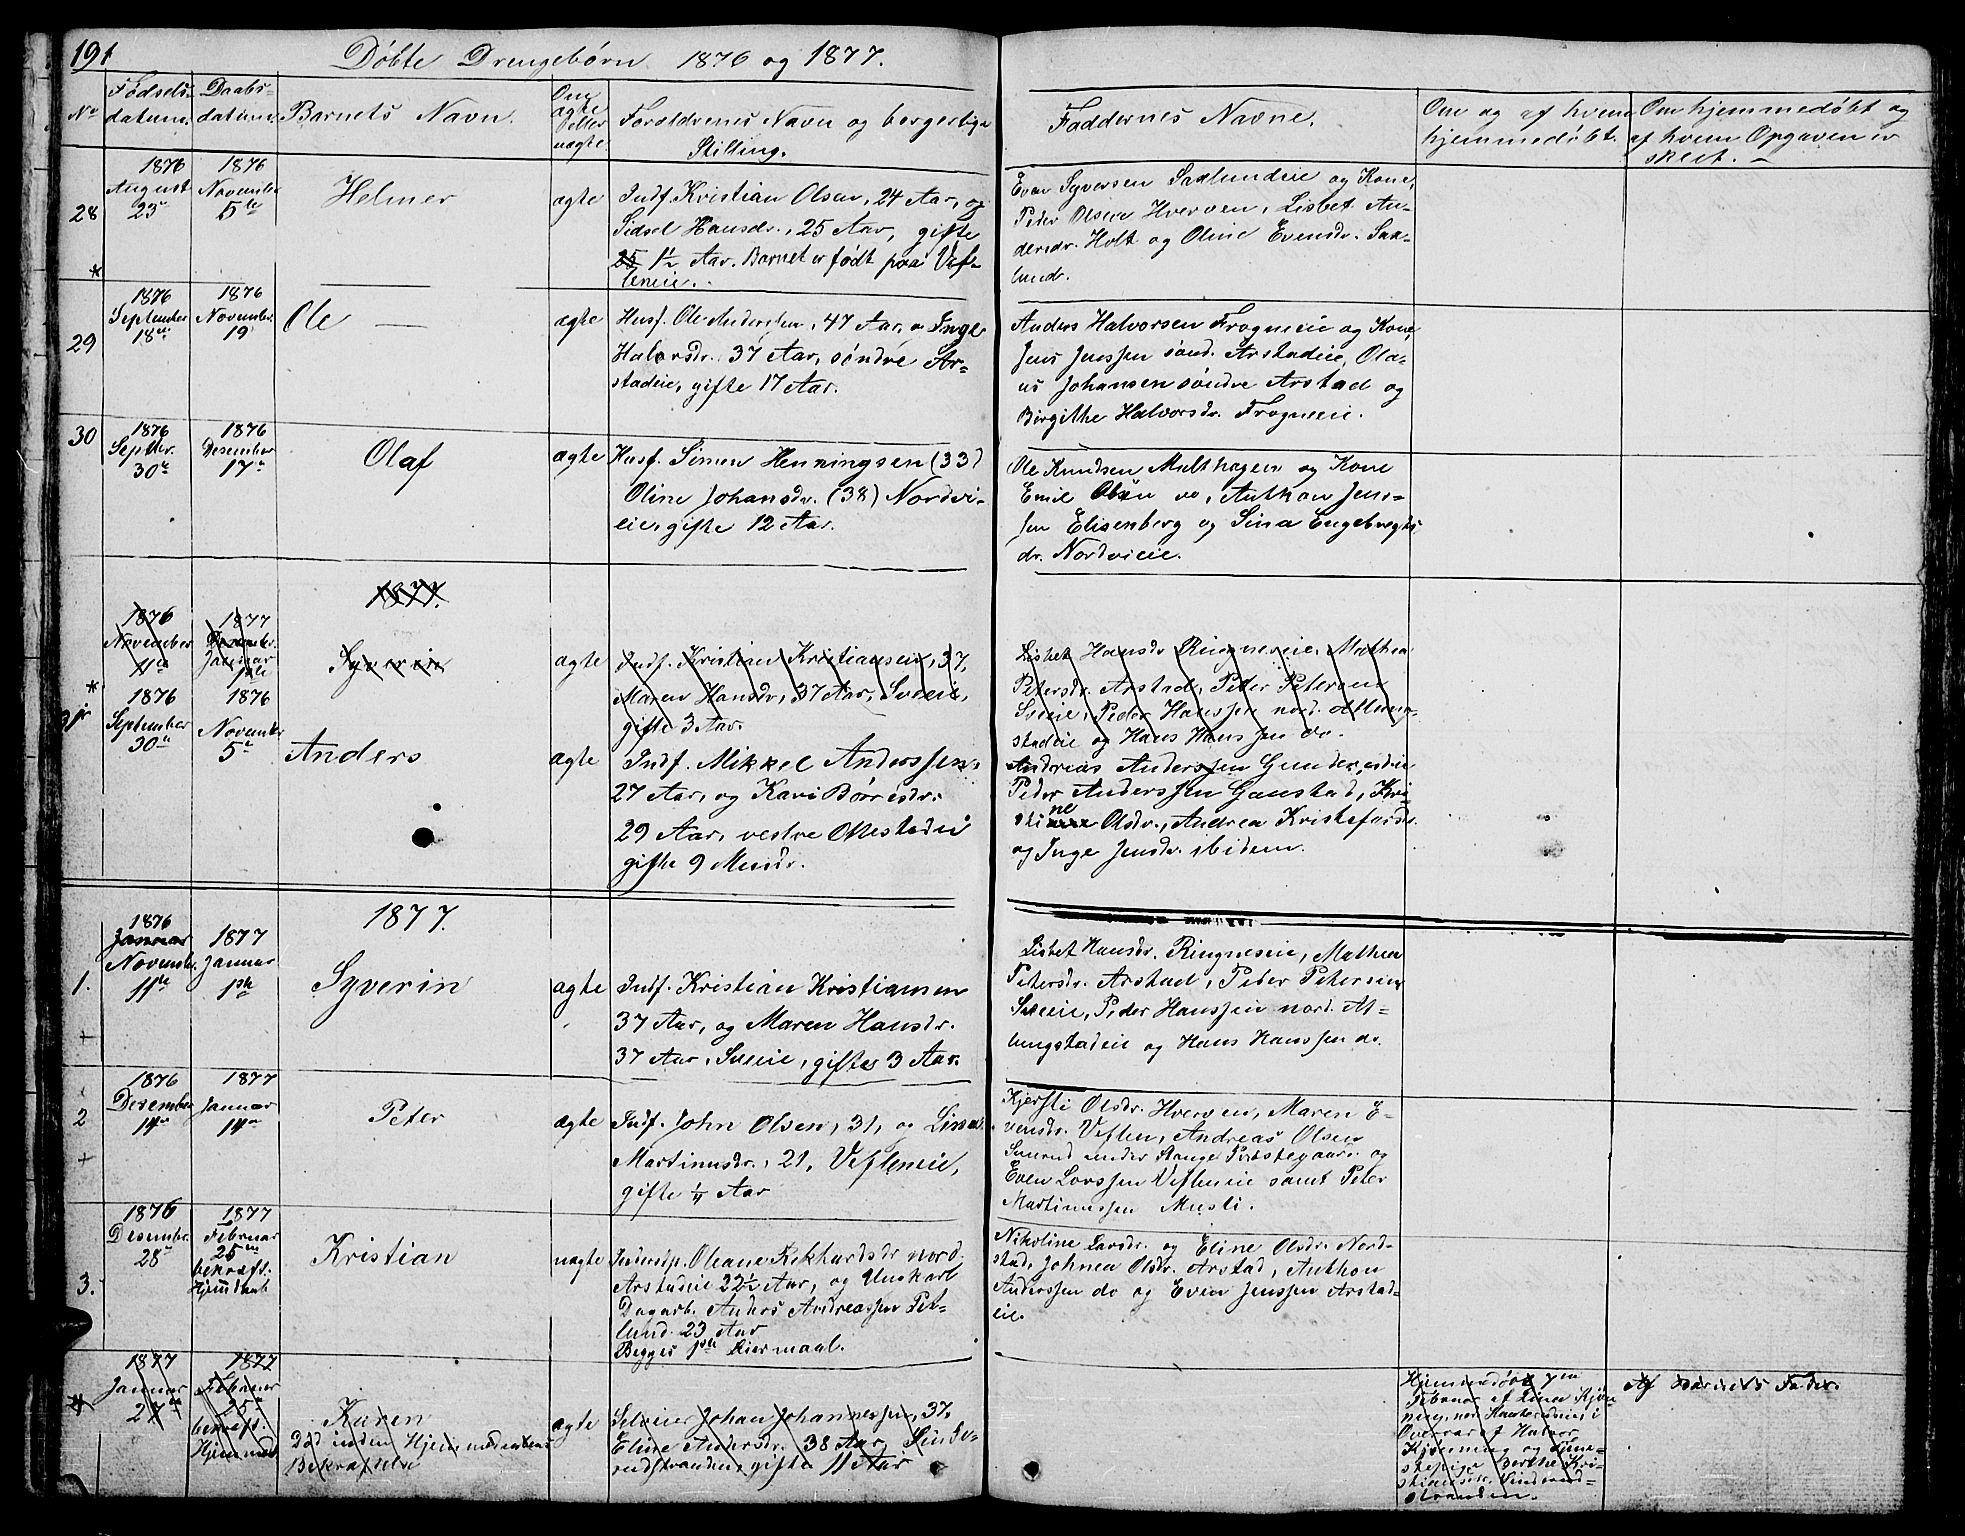 191
Døbte Drengebørn 1876 og 1877.
No
Fødsels-
datum.
Daabs-
datum.
Barnets Navn.
Om
ægte
eller
uægte
Forældrenes Navn og borgerlige
Stilling.
Faddernes Navne.
Om og af hvem
hjemmedøbt.
Om hjemmedøbt og
af hvem Opgaven er
skeet. —
28
*
1876
August
23
1876
November
5te
Helmer
ægte
Indf. Kristian Olsen, 24 Aar, og
Sidsel Hansdr., 25 Aar, gifte
25 1½ Aar. Barnet er født paa Vef-
leneie.
Even Syversen Saxlundeie og Kone,
Peder Olsen Hverven, Lisbet An-
dersdr. Holt og Oline Evensdr. Sax-
lund.
29
1876
September
18de
1876
November
19
Ole —
ægte
Husf. Ole Andersen, 47 Aar, og Inge
Halvorsdr. 37 Aar, søndre Ar-
stadeie, gifte 17 Aar.
Anders Halvorsen Frogneie og Kone,
Jens Jenssen sønd. Arstadeie, Ola-
us Johansen søndre Arstad og
Birgithe Halvorsdr. Frogneeie.
30
1876
Septbr.
30te
1876
Desember
17de
Olaf
ægte
Husf. Simen Henningsen (33)
Oline Johansdr. (38) Nordvi-
eie, gifte 12 Aar.
Ole Knudsen Multhagen og Kone
Emil Olsen do, Anthon Jens-
sen Elisenberg og Sina Engebregts-
dr. Nordvieie.
1877.
1876
November
11te
1877
Januar
1ste
Syverin
ægte
Indf. Kristian Kristiansen, 37,
Maren Hansdr, 37 Aar, Sveeie,
gifte 3 Aar.
Lisbet Hansdr Ringneseie, Mathea
Petersdr. Arstad, Peder Petersen
Sveeie, Peder Hanssen nord.
stadeie og Hans Hanssen do.
*
31
1876
September
30te
1876
November
5te
Anders
ægte
Indf. Mikkel Anderssen,
27 Aar, og Kari Børresdr.
29 Aar, vestre Ottestadeie
gifte 9 Mdr.
Andreas Anderssen
Peder Anderssen Gaustad, Kri-
stine Olsdr., Andrea Kristofersdr.
og Inge Jensdr. ibidem.
1877.
1.
+
1876
Januar
November
11te
1877
Januar
1ste
Syverin
ægte
Indf. Kristian Kristiansen
37 Aar, og Maren Hansdr.
37 Aar, Sveeie, gifte 3 Aar.
Lisbet Hansdr. Ringneseie, Mathea
Petersdr. Arstad, Peder Petersen
Sveeie, Peder Hanssen nord. At-
lungstadeie og Hans Hanssen do.
2
+
1876
Desember
14de
1877
Januar
14de
Peter
ægte
Indf. John Olsen, 31, og Lina
Martinusdr., 21, Vefleneie,
gifte ¼ Aar
Kjersti Olsdr. Hverven, Maren E-
vensdr. Veflen, Andreas Olsen
under Stange Præstegaard og
Even Larssen Vefleneie samt Peter
Martinussen Musli.
3.
1876
Desember
28de
1877
Februar
25de
bekræft.
Hjemdaab
Kristian
uægte
Inderstp. Oleane Rikhardsdr nord.
Arstadeie 22½ Aar, og Ungkarl
Dagarb. Anders Andreassen Pet-
lund 23 Aar
Begges 1ste Leiermaal.
Nikoline Larsdr. og Eline Olsdr. Nord-
stad, Johnea Olsdr. Arstad, Anthon
Anderssen do og Even Jenssen Arstad-
eie.
*
1877
Januar
27de
1877
Februar
25de
bekræft.
Hjemmed
Karen
Død inden Hjemmedaabens
Bekræftelse
ægte
Selveier Johan Johannessen, 37,
Eline Andersdr. 38 Aar,
gifte 11 Aar
Hjemmedøbt 7de
Februar af Lina Kjøn-
Overvær af Halvor
og
Berthe Kri-
stiansdr.
stranden.
Af Barnets Fader.